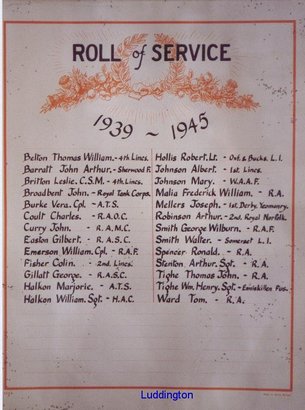 ROLL of SERVICE
1939 ~ 1945
Belton Thomas William. - 4th Lincs.
Barratt John Arthur. - Sherwood F.
Britton Leslie. C.S.M. - 4th Lincs.
Broadbent John. - Royal Tank Corps.
Burke Vera. Cpl. - A.T.S.
Coult Charles. - R.A.O.C.
Curry John. - R.A.M.C.
Easton Gilbert. - R.A.S.C.
Emerson William. Cpl. - R.A.F.
Fisher Colin. - 2nd. Lincs.
Gillatt George. - R.A.S.C.
Halkon Marjorie. - A.T.S.
Halkon William. Sgt. - H.A.C.
Hollis Robert. Lt. - Oxf. & Bucks. L.I.
Johnson Albert. - 1st. Lincs.
Johnson Mary. - W.A.A.F.
Malia Frederick William. - R.A.
Mellers Joseph. - 1st. Derby. Yeomanry.
Robinson Arthur. - 2nd. Royal Norfolk.
Smith George Wilburn. - R.A.F.
Smith Walter. - Somerset L.I.
Spencer Ronald. - R.A.
Stenton Arthur. Sgt. - R.A.
Tighe Thomas John. - R.A.
Tighe Wm. Henry. Sgt. - Enniskillen Fus.
Ward Tom. - R.A.
Luddington